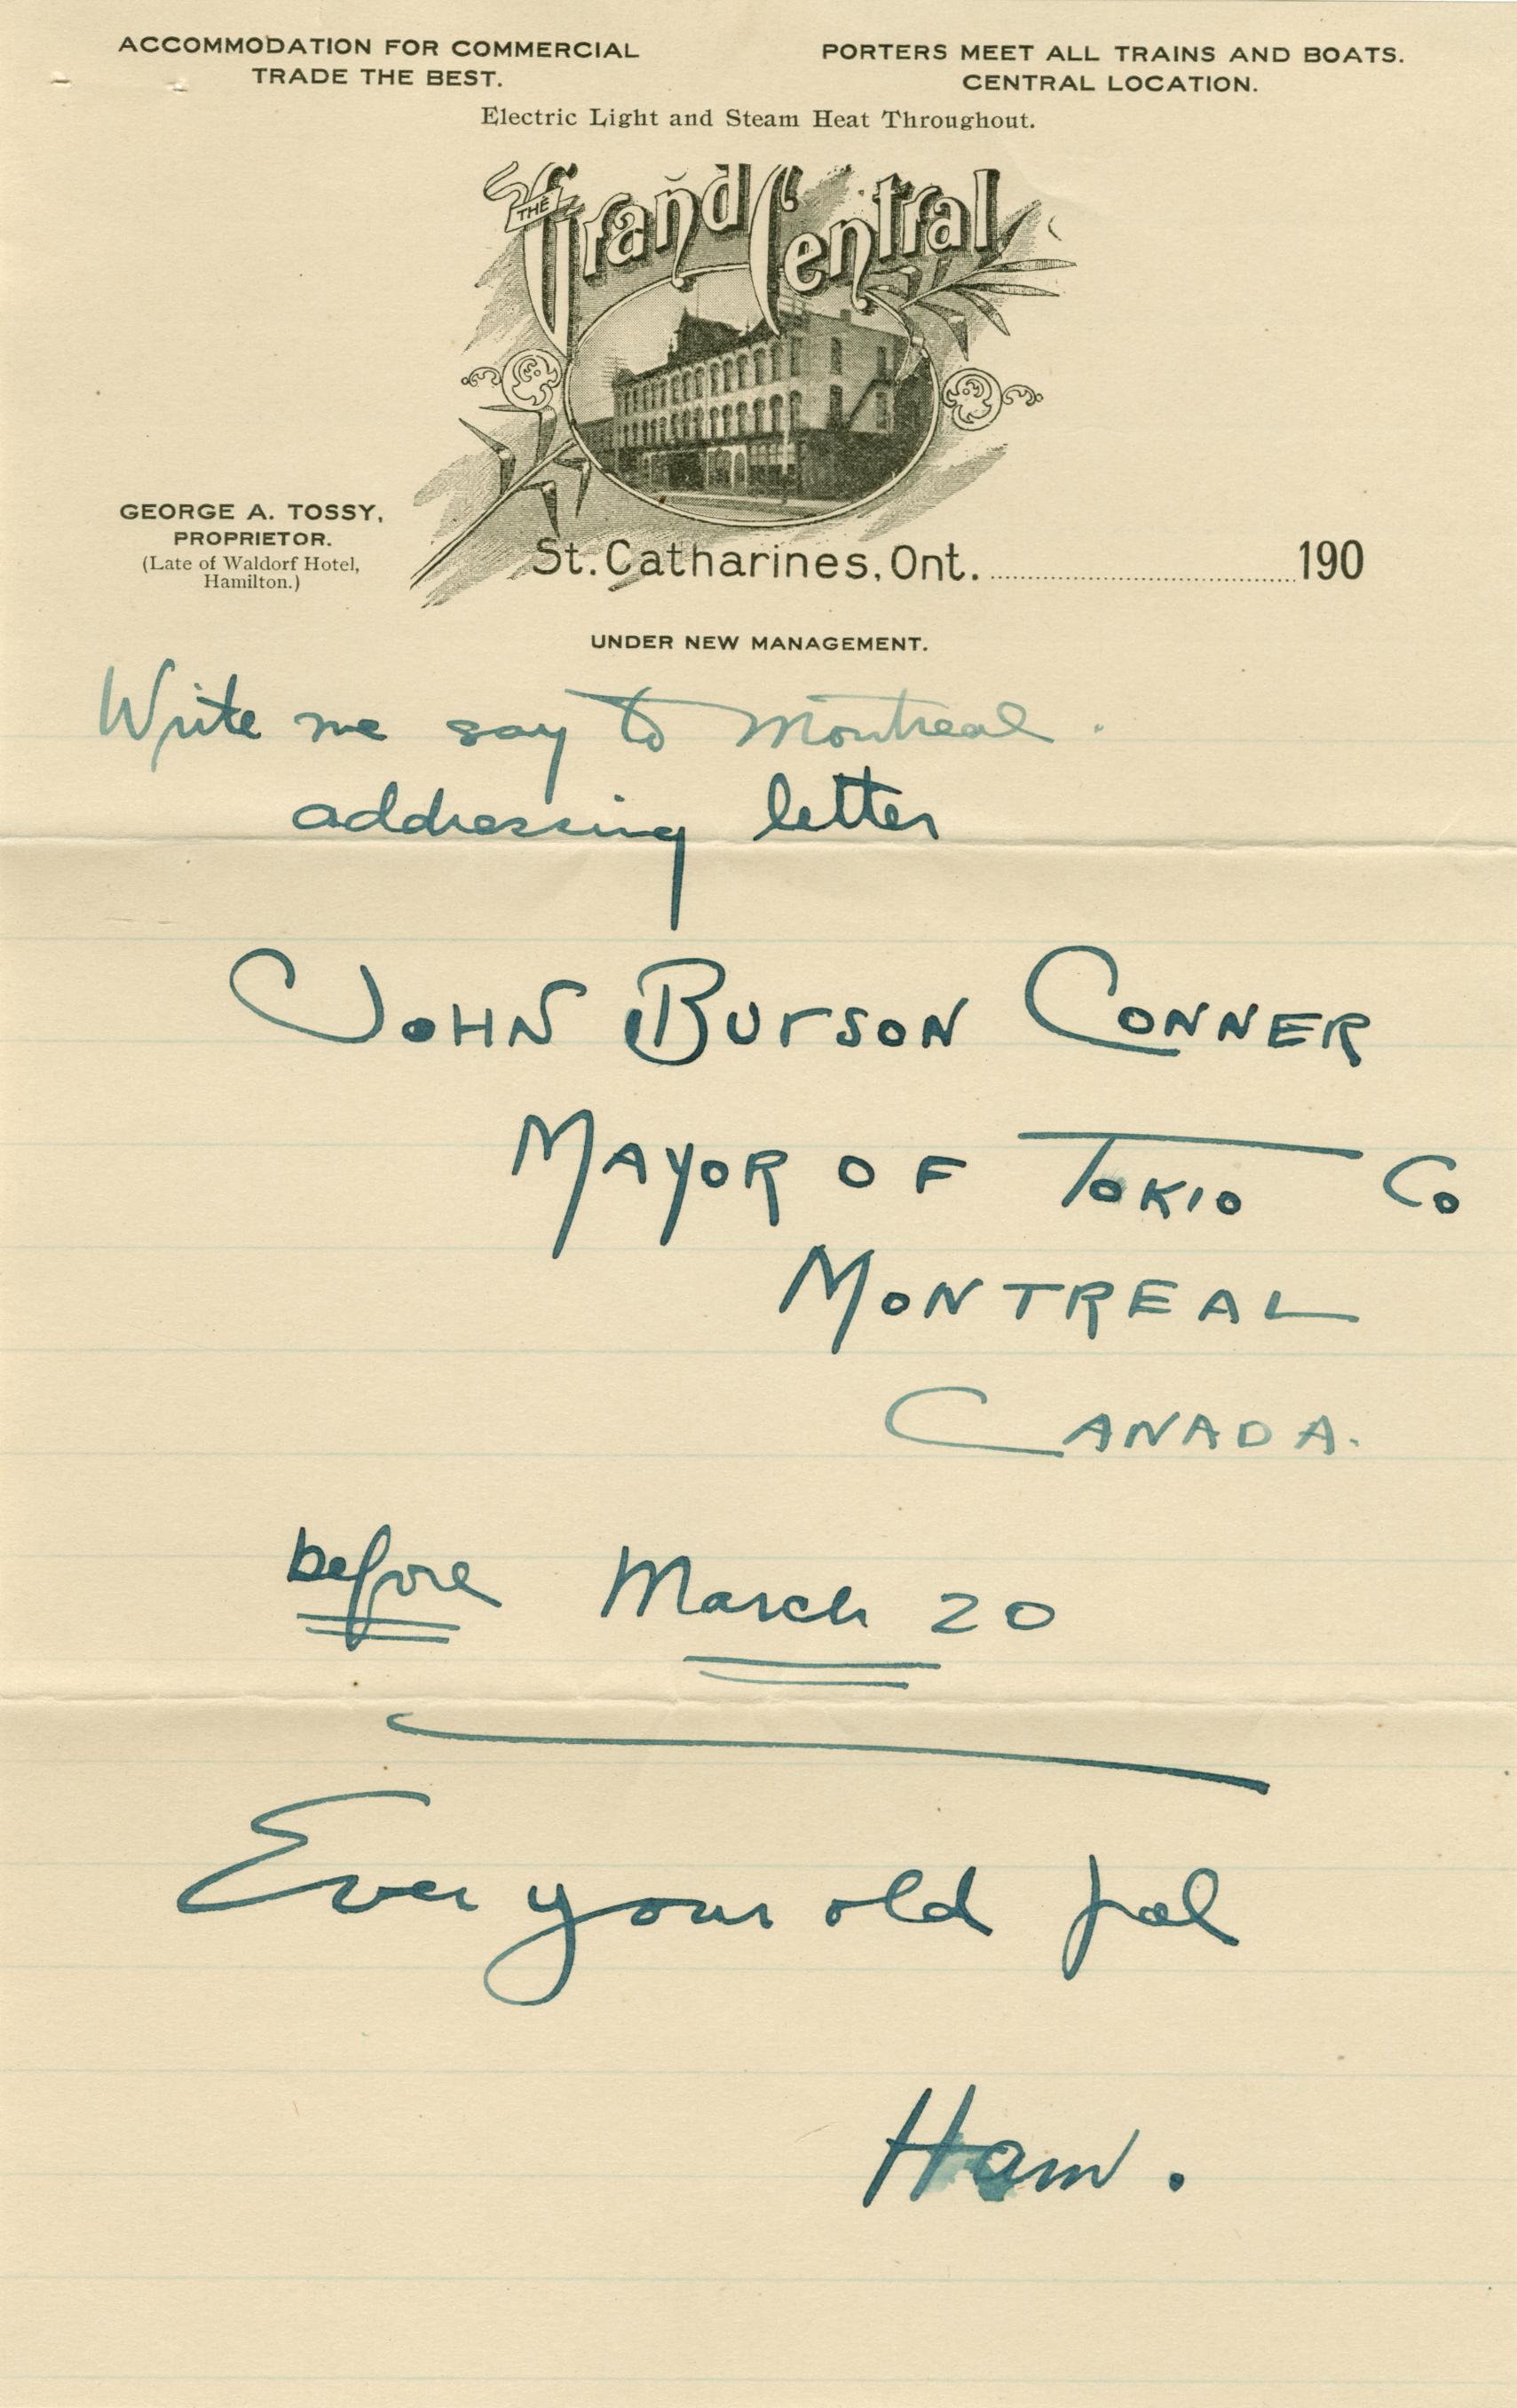 ACCOMMODATION FOR COMMERCIAL
TRADE THE BEST.
PORTERS MEET ALL TRAINS AND BOATS.
CENTRAL LOCATION.
Electric Light and Steam Heat Throughout.
THE Grand Central
GEORGE A. TOSSY,
PROPRIETOR.
(Late of Waldorf Hotel,
Hamilton.)
St. Catharines, Ont. 190
UNDER NEW MANAGEMENT.
Write me say to Montreal.
addressing letter
JOHN BURSON CONNER
MAYOR OF TOKIO Co
MONTREAL
CANADA.
before March 20
Ever your old pal
Ham.